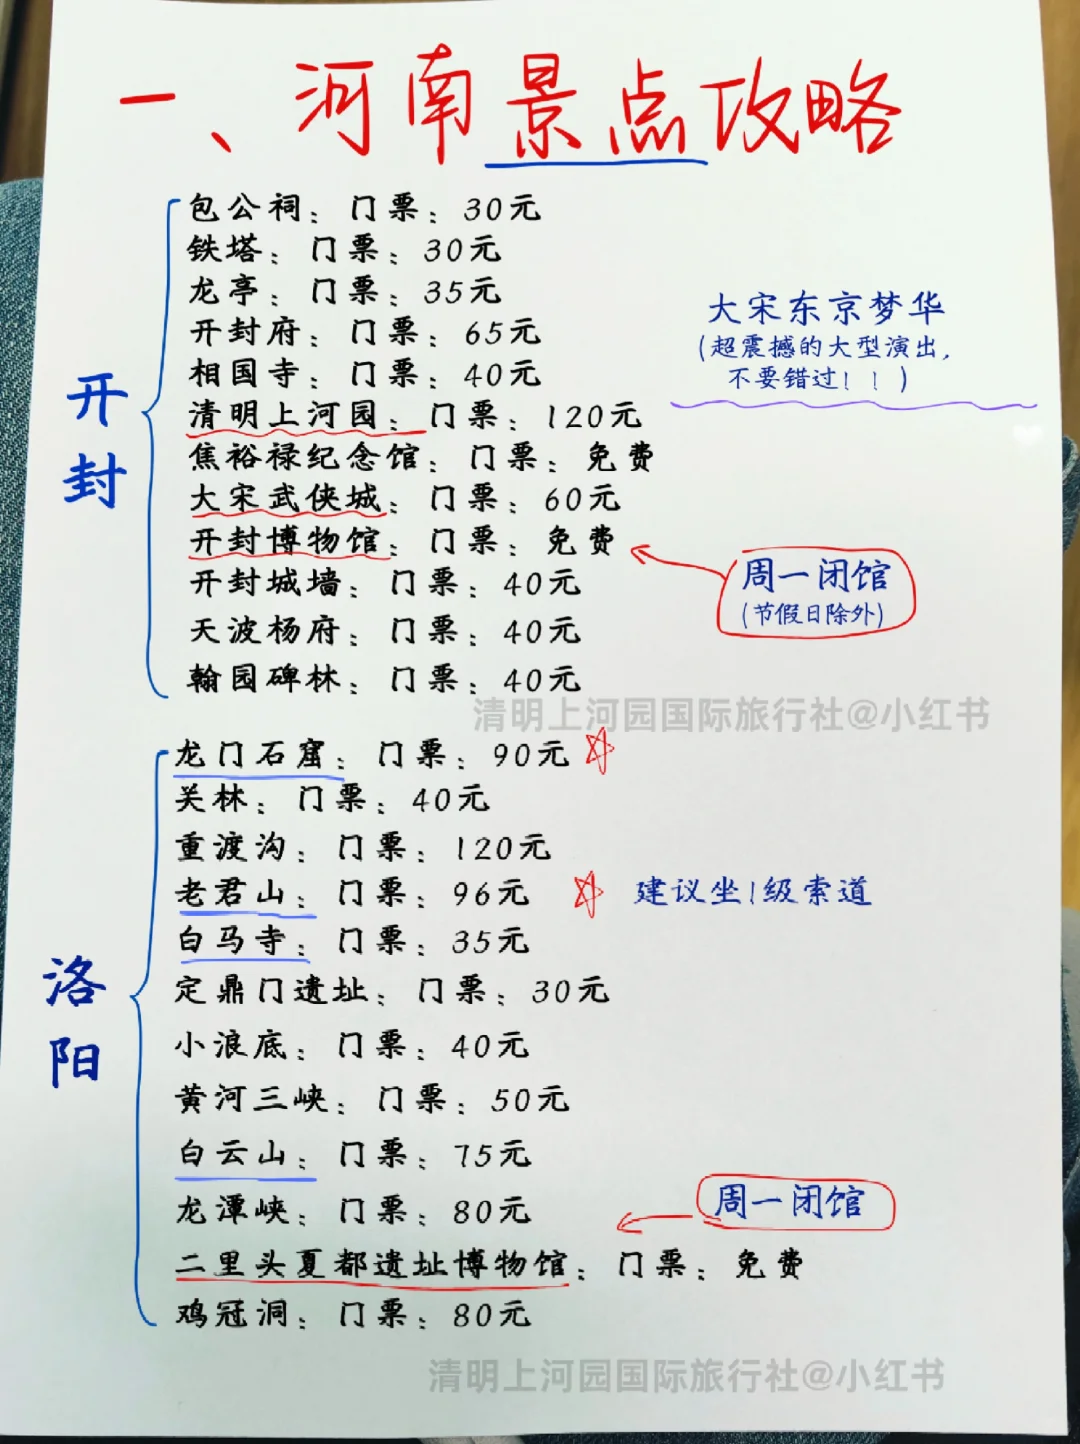 一、河南景点攻略
开封
包公祠：门票：30元
铁塔：门票：30元
龙亭：门票：35元
开封府：门票：65元
相国寺：门票：40元
清明上河园：门票：120元
焦裕禄纪念馆：门票：免费
大宋武侠城：门票：60元
开封博物馆：门票：免费
开封城墙：门票：40元
天波杨府：门票：40元
翰园碑林：门票：40元
大宋东京梦华
(超震撼的大型演出,
不要错过！！)
周一闭馆
(节假日除外)
清明上河园国际旅行社@小红书
洛阳
龙门石窟：门票：90元
关林：门票：40元
重渡沟：门票：120元
老君山：门票：96元
建议坐1级索道
白马寺：门票：35元
定鼎门遗址：门票：30元
小浪底：门票：40元
黄河三峡：门票：50元
白云山：门票：75元
龙潭峡：门票：80元
周一闭馆
二里头夏都遗址博物馆：门票：免费
鸡冠洞：门票：80元
清明上河园国际旅行社@小红书